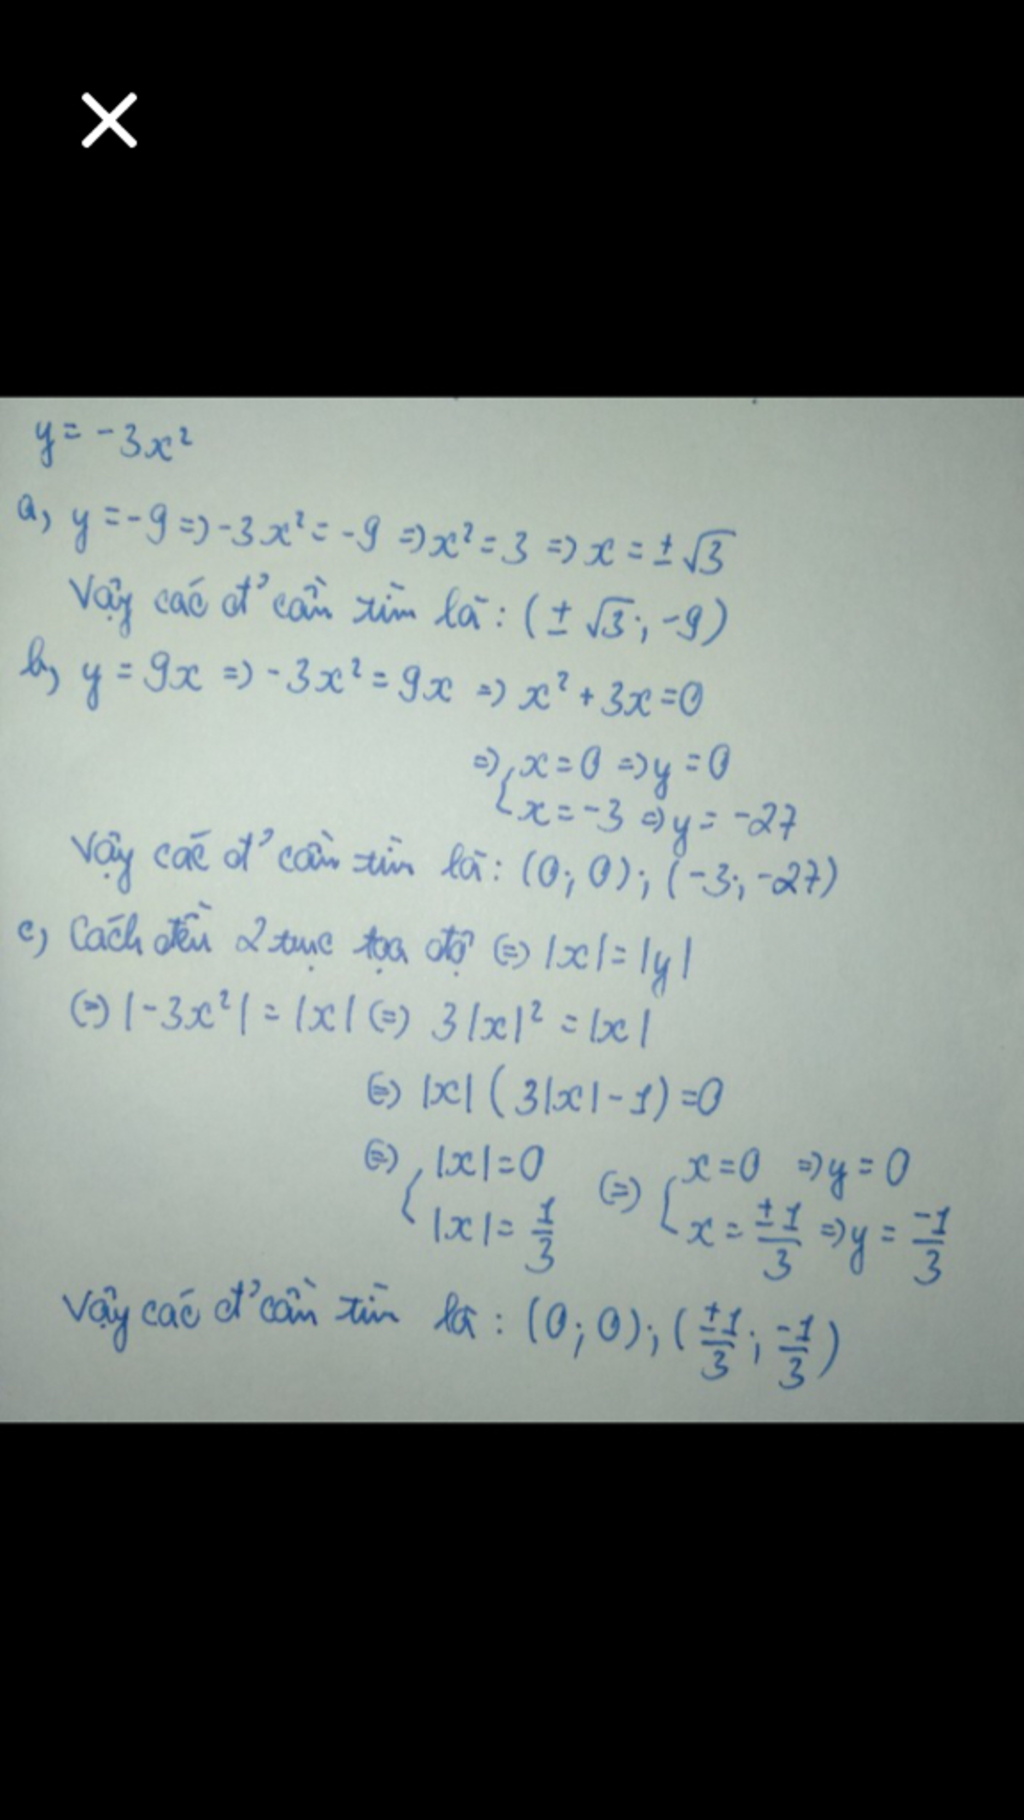 y = -3x²
a, y = -9 => -3x² = -9 => x² = 3 => x = ±√3
Vậy các đ' cần tìm là : (±√3; -9)
b, y = 9x => -3x² = 9x => x² + 3x = 0
=> { x = 0 => y = 0
x = -3 => y = -27
Vậy các đ' cần tìm là : (0; 0); (-3; -27)
c, Cách đều 2 trục tọa độ (=) |x| = |y|
(=) |-3x²| = |x| (=) 3|x|² = |x|
(=) |x| (3|x| - 1) = 0
(=) { |x| = 0 (=) { x = 0 => y = 0
|x| = 1/3 x = ±1/3 => y = -1/3
Vậy các đ' cần tìm là : (0; 0); (±1/3; -1/3)